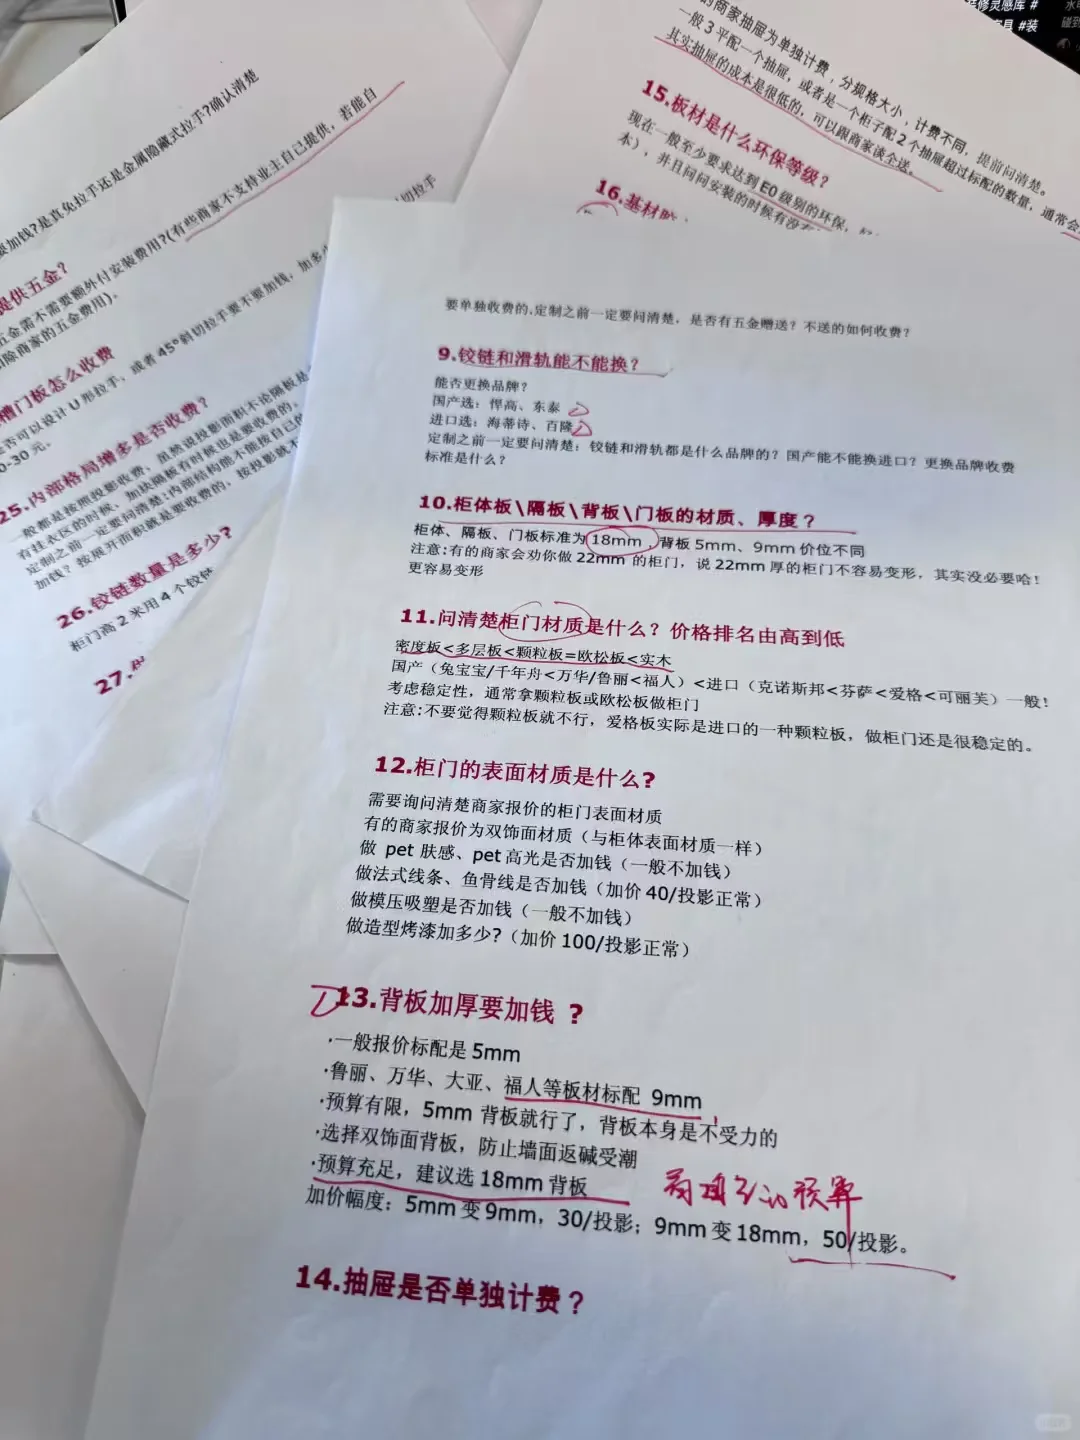 要加钱?是真免拉手还是金属隐藏式拉手?确认清楚
提供五金?
五金需不需要额外付安装费用?(有些商家不支持业主自己提供，若能自
扣除商家的五金费用)。
槽门板怎么收费
是否可以设计 U 形拉手，或者 45°斜切拉手要不要加钱，加多
0-30 元。
切拉手
25.内部格局增多是否收费？
般都是按照投影收费、虽然说投影面积不论隔板是
有挂衣区的时候、加块隔板有时候也是要收费的，
定制之前一定要问清楚:内部结构能不能按自己的
加钱？按展开面积就是要收费的，按投影就不
26.铰链数量是多少?
柜门高 2 米用 4 个铰链
27.
的商家抽屉为单独计费，分规格大小，计费不同，提前问清楚。
一般 3 平配一个抽屉，或者是一个柜子配 2 个抽屉超过标配的数量，通常会
其实抽屉的成本是很低的，可以跟商家谈全送。
15.板材是什么环保等级？
现在一般至少要求达到 E0 级别的环保，
本），并且问问安装的时候有没有
16.基材
要单独收费的,定制之前一定要问清楚，是否有五金赠送？不送的如何收费？
9.铰链和滑轨能不能换？
能否更换品牌？
国产选：悍高、东泰
进口选：海蒂诗、百隆
定制之前一定要问清楚：铰链和滑轨都是什么品牌的？国产能不能换进口？更换品牌收费
标准是什么？
10.柜体板\隔板\背板\门板的材质、厚度？
柜体、隔板、门板标准为 18mm，背板 5mm、9mm 价位不同
注意:有的商家会劝你做 22mm 的柜门，说 22mm 厚的柜门不容易变形，其实没必要哈！
更容易变形
11.问清楚柜门材质是什么？价格排名由高到低
密度板<多层板<颗粒板=欧松板<实木
国产（兔宝宝/千年舟<万华/鲁丽<福人）<进口（克诺斯邦<芬萨<爱格<可丽芙）一般！
考虑稳定性，通常拿颗粒板或欧松板做柜门
注意:不要觉得颗粒板就不行，爱格板实际是进口的一种颗粒板，做柜门还是很稳定的。
12.柜门的表面材质是什么?
需要询问清楚商家报价的柜门表面材质
有的商家报价为双饰面材质（与柜体表面材质一样）
做 pet 肤感、pet 高光是否加钱（一般不加钱）
做法式线条、鱼骨线是否加钱（加价 40/投影正常）
做模压吸塑是否加钱（一般不加钱）
做造型烤漆加多少?（加价 100/投影正常）
13.背板加厚要加钱 ?
·一般报价标配是 5mm
·鲁丽、万华、大亚、福人等板材标配 9mm
·预算有限，5mm 背板就行了，背板本身是不受力的
·选择双饰面背板，防止墙面返碱受潮
·预算充足，建议选 18mm 背板
加价幅度：5mm 变 9mm，30/投影；9mm 变 18mm，50/投影。
14.抽屉是否单独计费？